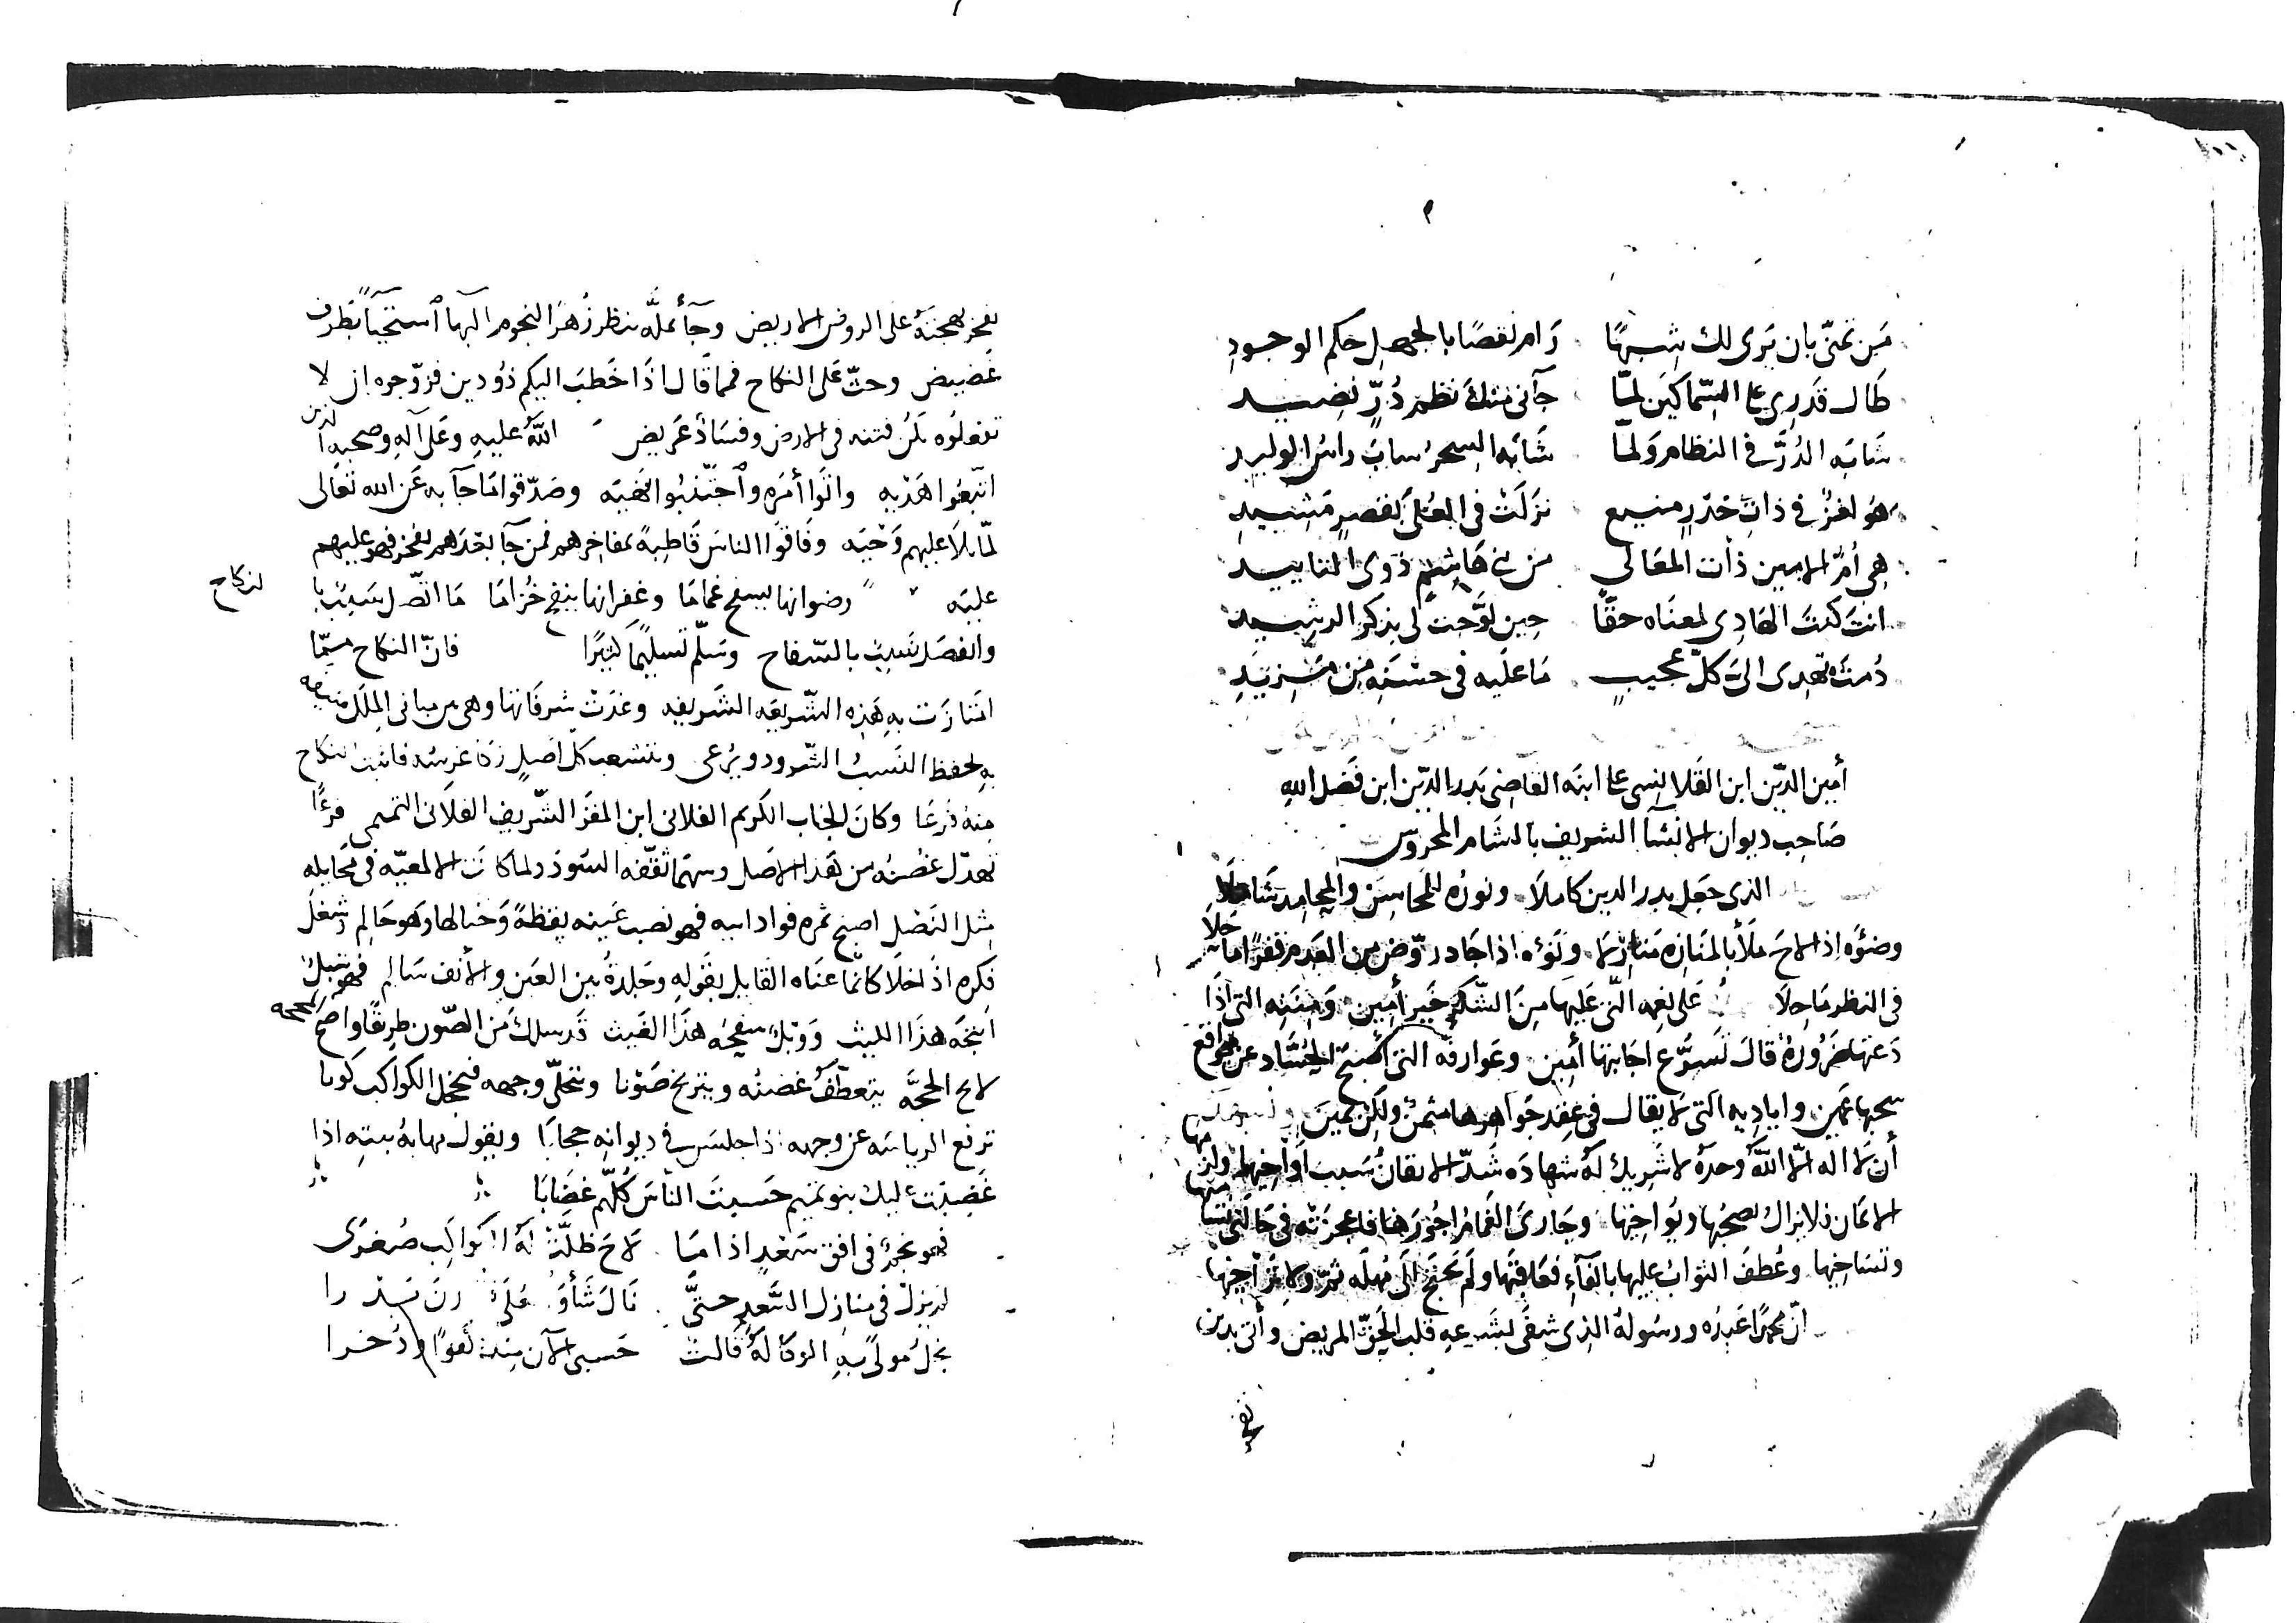 مَن تمنّى بان يَرى لك شِبهًا رَام نقصًا بالجهلِ حكم الوجودِ
طَال قَدري على السّماكَين لمّا جآنى منك نظم دُرٍّ نضيد
شابَه الدُرَّ في النظام ولمّا شَابَه السحرَ شابَ راسُ الوليد
هُو لغزٌ في ذاتِ خدرٍ منيع نزَلَتْ في العُلى بقصرٍ مَشيدِ
هى أُمّ الامين ذات المعَالي من بني هَاشِمٍ ذوى التاييد
انتَ كنتَ الهَادِى لمعنَاه حقًّا حِين لوّحت لى بذكر الرشيد
دُمتَ تهدى اليَّ كلَّ عجيبٍ مَا عليه في حسْنِه مِن مَزيدِ
أمِين الدّين ابن القَلانسى على ابنَه القاضى بَدر الدّين ابن فَضل الله
صَاحِب ديوان الانشآ الشريف بالشام المحروس
الذى جعل بدر الدين كاملاً ونورُه للمَحاسِن والمحامِد شَاملاً
وضوُه اذا لاحَ مَلأ بالمَنازِه مَنازلا ونَوْه اذا جَاد روّض من العَدم قفرًا مَا حَلا
في النظر مَاحِلاَ على نعمه الّتى عَليهَا مِنَ الشّكرِ خَير أمين ومِنَنِه التى اذَا
دَعتها ضَرُورةٌ قالَ تَسَوُّع اجَابتِها أمين وعَوارفه التى أصْبح الحسَّاد عن مواقع
سحبها عَمِين واياديه التى لا يقال في عِقد جَواهرها مثمنٌ ولكن ثمين
أن لا اله الّا اللّه وحدَهُ لا شَريك لَهُ شهادَه شَدّ الايقانُ سَبب أوَاخِيها
الايمان فلا يزال يصحبُها ويُواخِيها وجَارى الغَمامُ اجُورَها فاعجزَتْه في حَالتى
وتسَاخِيها وعُطفَ الثوابُ عليها بالفآءِ فعَاقبَهَا ولَم يحتَج الى مُهلَه ثمّ ولا تراخِيها
انّ محمدًا عَبدُه ورسُولهُ الذى شفَى بشَرعِه قلب الحقّ المريض وأتى بدين
يفخر
يفخر بهجتهُ على الروض الاريض وجآ بملّه ينظر زُهرُ النجوم اليها استحيآءً بطَرف
غضيض وحثّ عَلى النكاح فمما قَال اذَا خَطبَ اليكم ذُو دين فزوّجوه ان لا
تفعلوُه تكُن فتنه في الارض وفسَادٌ عَريض اللّه عليه وعَلى آلهِ وصحبِه الذين
اتّبعُوا هَدْيه واتَوا أمرَه واجتنبُوا نَهيَه وصَدّقوا مَا جآ به عَن الله تعَالى
لمّا تلاَ عليهم وَحْيَه وفَاقوا الناسَ قَاطبةً بمفاخِرهم فمن جآ بعْدَهم يفخر فهو عليهم
عليَه رضوانها يسفح غمامَا وغفرانها ينفح خُزامَا مَا اتّصل سَببٌ با لنكاح
وانفصَل نَسبٌ بالسّفاح وسَلّم تسليمًا كثيرًا فانّ النكاح ممّا
امتَازَت بهِ هَذِه الشّريعَه الشّريفه وغدَتْ شرفَاتها وهى من مبانى المِلَل منيفه
بِه لحفظ النَسبُ الشّرود ويُرعى وينشعب كلّ اصلٍ زكَا غرسُه فانبت النكاح
مِنهُ فَرعًا وكانَ الجناب الكريم الفلانى ابن المقرّ الشّريف الفلانى التميمى فرعًا
تهدّل غصْنُه من هَذا الاصل وسهمًا ثقّفه السُودد ولما كانَت الالمعيّه في مخايله
مثل النَصْل اصبح ثمره فواد ابيه فهو نصب عَينه يقظةً وخيالها وَهو حَالِم وشغلَ
فكرِه اذَا خلَا كانّما عنَاه القايل بقَولهِ وجَلدةُ بين العَين والأنف سَالِم فهو شبل
انتجَه هذَا الليثُ ووَبلٌ سفحَهُ هذَا الغيث قَد سلكَ مَن الصّون طرِيقًا واضح المحجه
لاح الحجَّه يتعطّفُ غصنُه ويترنح صَوْنا ويتجلّى وجهه فيخجل الكواكب كونا
ترفع الرياسَه عن وجهه اذا جلسَ في ديوانِه حجابًا ويقول مهابهُ بيتِه اذا
غَضِبَت عليك بنو تميم حَسبتَ النّاسَ كُلّهم غضَابَا
فهو نجمٌ في افق سَعْدٍ اذا مَا لاحَ ظلّتْ لهُ الكواكِب صُغرَى
لم يزلْ في منازل السَّعدِ حتّى نَال شَأوَ
نجلُ مولًى بهِ الوكالهُ قَالت حَسبى الآن مِنه عَونًا وذُخرا